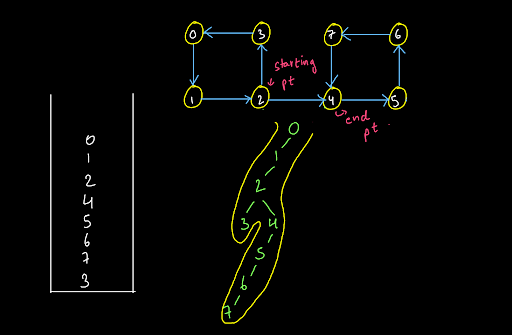 0 3 7 6
starting
pt
1 2 4 5
end
pt.
0
1
2
4
5
6
7
3
0
1
2
3 4
5
6
7